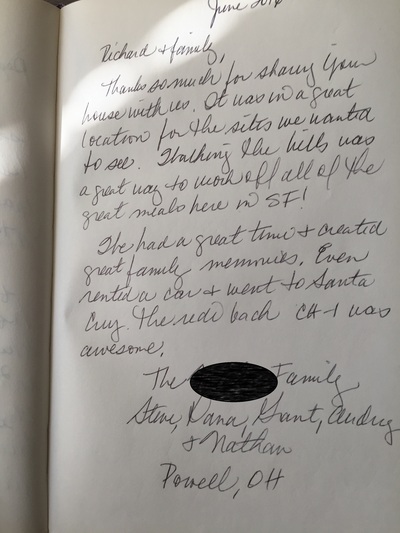 June 2014
Richard & family,
Thanks so much for sharing your
house with us. It was in a great
location for the sites we wanted
to see. Walking the hills was
a great way to work off all of the
great meals here in SF!
We had a great time & created
great family memories. Even
rented a car & went to Santa
Cruz. The ride back CH-1 was
awesome.
The Family
Steve, Dana, Grant, Audrey
& Nathan
Powell, OH